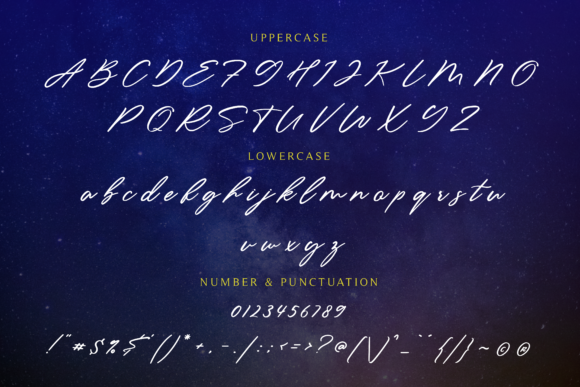 UPPERCASE
A B C D E F G H I J K L M N O
P Q R S T U V W X Y Z
LOWERCASE
a b c d e f g h i j k l m n o p q r s t u
v w x y z
NUMBER & PUNCTUATION
0 1 2 3 4 5 6 7 8 9
! " # $ % & ' ( ) * + , - . / : ; < = > ? @ [ \ ] ^ _ ` { | } ~ © ®